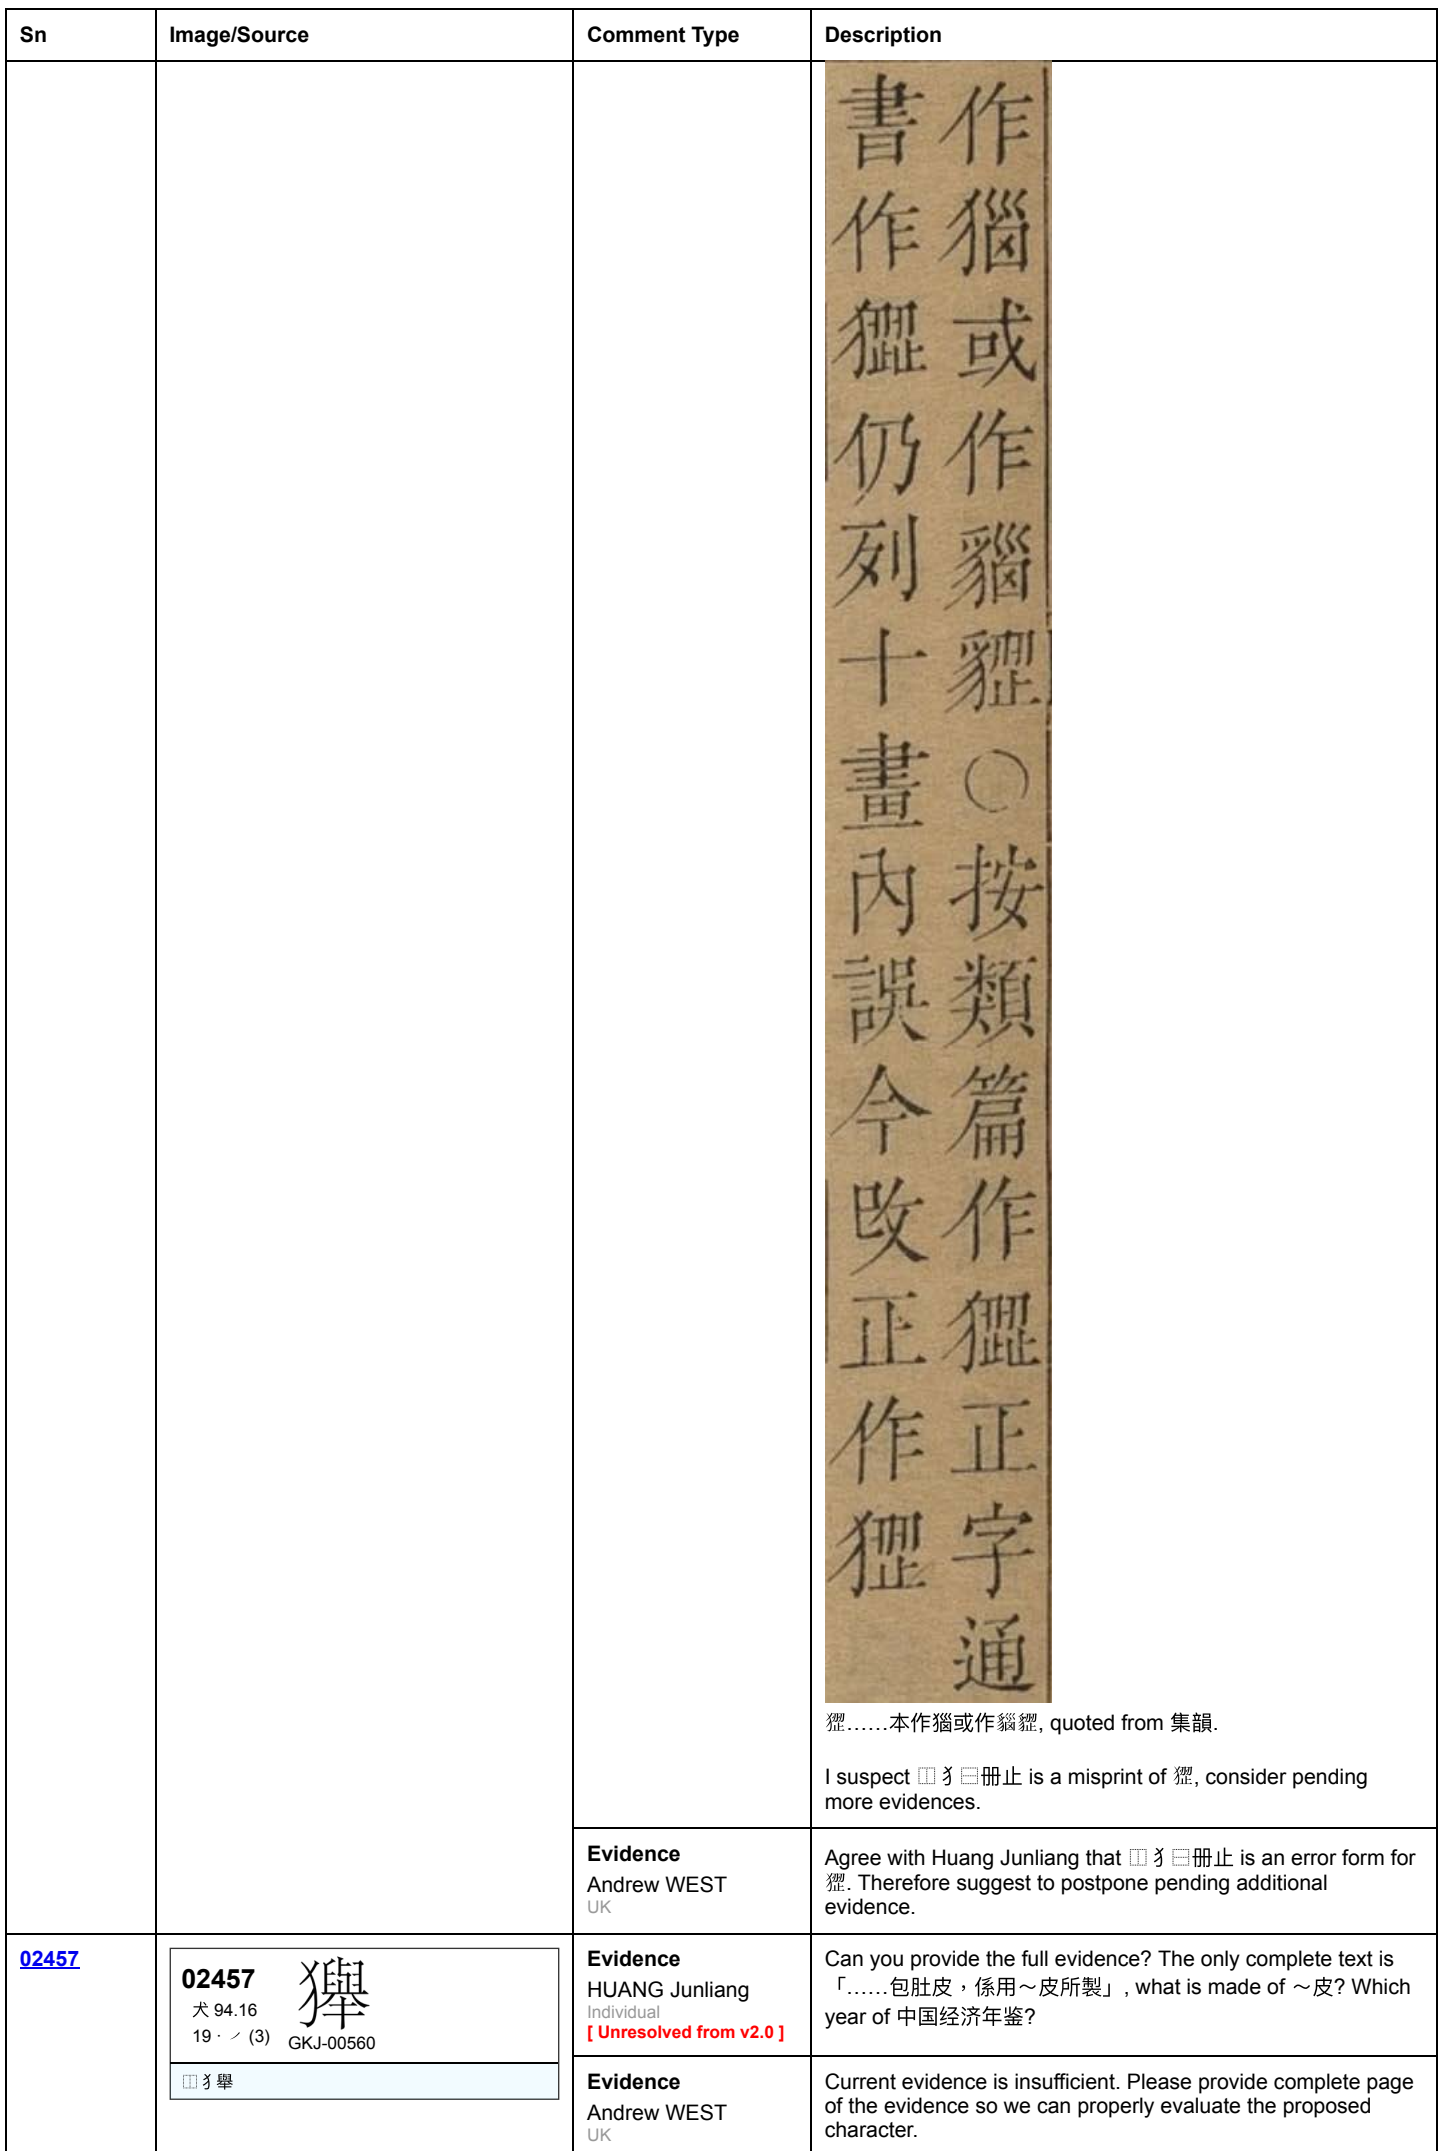 Sn Image/Source Comment Type Description
作或作○按類篇作正字通
書作仍列十畫內誤今改正作
……本作或作, quoted from 集韻.
I suspect ⿰犭⿱册止 is a misprint of , consider pending
more evidences.
Evidence
Andrew WEST
UK
Agree with Huang Junliang that ⿰犭⿱册止 is an error form for
. Therefore suggest to postpone pending additional
evidence.
02457
02457
犬 94.16
19 · ㇒ (3)
GKJ-00560
⿰犭舉
Evidence
HUANG Junliang
Individual
[ Unresolved from v2.0 ]
Can you provide the full evidence? The only complete text is
「……包肚皮，係用～皮所製」, what is made of ～皮? Which
year of 中国经济年鉴?
Evidence
Andrew WEST
UK
Current evidence is insufficient. Please provide complete page
of the evidence so we can properly evaluate the proposed
character.